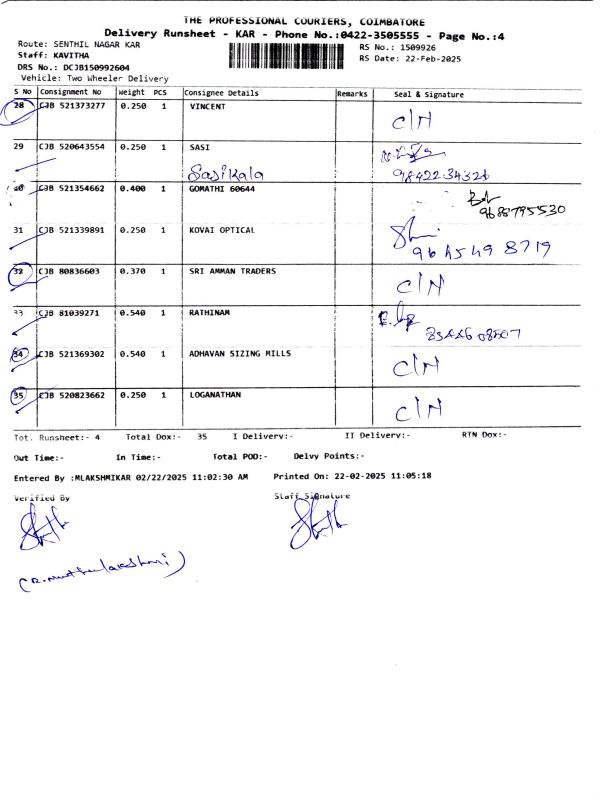 THE PROFESSIONAL COURIERS, COIMBATORE
Delivery Runsheet - KAR - Phone No.:0422-3505555 - Page No.:4
Route: SENTHIL NAGAR KAR
RS No.: 1509926
Staff: KAVITHA
RS Date: 22-Feb-2025
DRS No.: DCJB150992604
Vehicle: Two Wheeler Delivery
S No Consignment No Weight PCS Consignee Details Remarks Seal & Signature
28 CJB 521373277 0.250 1 VINCENT C/N
29 CJB 520643554 0.250 1 SASI
Sasikala 9842234326
30 CJB 521354662 0.400 1 GOMATHI 60644
9688795530
31 CJB 521339891 0.250 1 KOVAI OPTICAL
9645498719
32 CJB 80836603 0.370 1 SRI AMMAN TRADERS C/N
33 CJB 81039271 0.540 1 RATHINAM
34 CJB 521369302 0.540 1 ADHAVAN SIZING MILLS C/N
35 CJB 520823662 0.250 1 LOGANATHAN C/N
Tot. Runsheet:- 4 Total Dox:- 35 I Delivery:- II Delivery:- RTN Dox:-
Out Time:- In Time:- Total POD:- Delvy Points:-
Entered By :MLAKSHMIKAR 02/22/2025 11:02:30 AM Printed On: 22-02-2025 11:05:18
Verified By Staff Signature
(R.muthulakshmi)